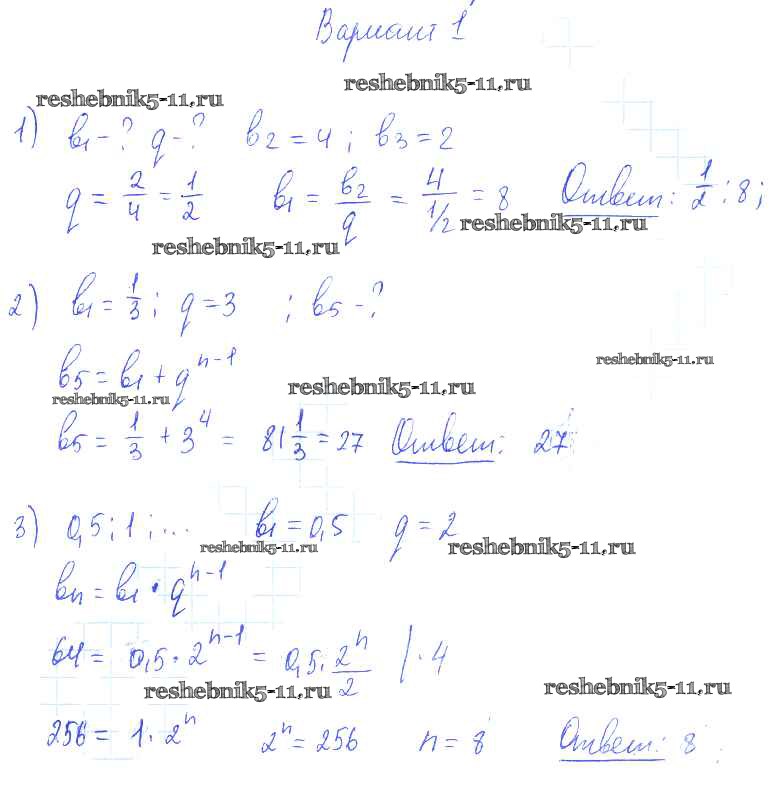 Вариант 1
reshebnik5-11.ru
reshebnik5-11.ru
1) b₁ - ? q - ? b₂ = 4 ; b₃ = 2
q = 2/4 = 1/2 b₁ = b₂/q = 4/(1/2) = 8 Ответ: 1/2 ; 8;
reshebnik5-11.ru
reshebnik5-11.ru
2) b₁ = 1/3 ; q = 3 ; b₅ - ?
reshebnik5-11.ru
b₅ = b₁ + qⁿ⁻¹
reshebnik5-11.ru
reshebnik5-11.ru
b₅ = 1/3 + 3⁴ = 81 1/3 = 27 Ответ: 27
3) 0,5 ; 1 ; ... b₁ = 0,5 q = 2
reshebnik5-11.ru
reshebnik5-11.ru
bₙ = b₁ · qⁿ⁻¹
64 = 0,5 · 2ⁿ⁻¹ = 0,5 · 2ⁿ/2 | · 4
reshebnik5-11.ru
reshebnik5-11.ru
256 = 1 · 2ⁿ 2ⁿ = 256 n = 8 Ответ: 8